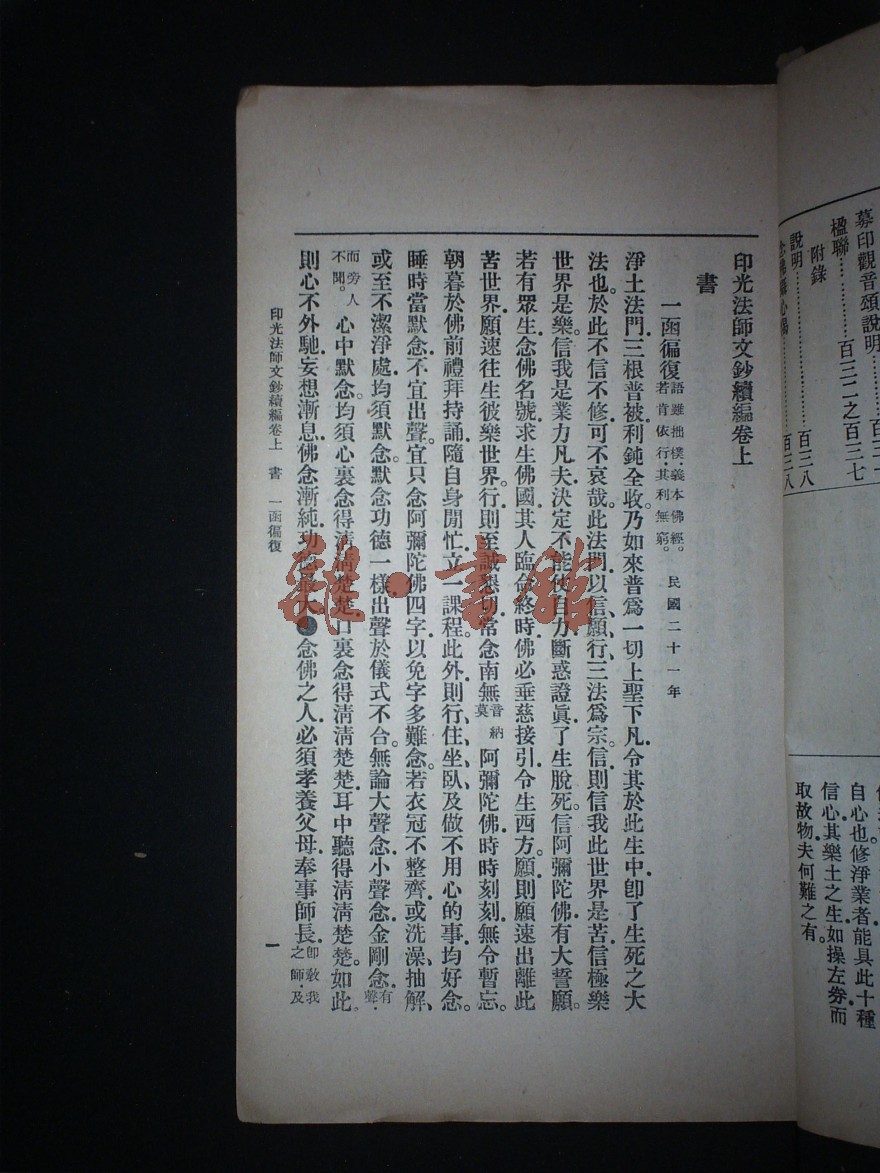 募印觀音頌說明……百三十
楹聯……百三二之百三七
附錄
說明……百三八
百三八
自心也。修淨業者能具此十種
信心。其樂土之生。如操左劵而
取故物。夫何難之有。
印光法師文鈔續編卷上
書
一函徧復 語雖拙樸。義本佛經。若肯依行。其利無窮。 民國二十一年
淨土法門。三根普被。利鈍全收。乃如來普爲一切上聖下凡。令其於此生中。卽了生死之大
法也。於此不信不修。可不哀哉。此法門。以信、願、行、三法爲宗。信、則信我此世界是苦。信極樂
世界是樂。信我是業力凡夫。決定不能仗自力。斷惑證眞。了生脫死。信阿彌陀佛。有大誓願。
若有眾生。念佛名號。求生佛國。其人臨命終時。佛必垂慈接引。令生西方。願、則願速出離此
苦世界。願速往生彼樂世界。行、則至誠懇切。常念南無音納莫阿彌陀佛。時時刻刻。無令暫忘。
朝暮於佛前禮拜持誦。隨自身閒忙。立一課程。此外。則行、住、坐、臥、及做不用心的事。均好念。
睡時當默念。不宜出聲。宜只念阿彌陀佛四字。以免字多難念。若衣冠不整齊。或洗澡、抽解、
或至不潔淨處。均須默念。默念功德一樣。出聲於儀式不合。無論大聲念。小聲念。金剛念。有聲。
而旁人不聞。心中默念。均須心裏念得淸淸楚楚。口裏念得淸淸楚楚。耳中聽得淸淸楚楚。如此。
則心不外馳。妄想漸息。佛念漸純。功德最大。●念佛之人。必須孝養父母。奉事師長。卽敎我之師。及
印光法師文鈔續編卷上 書 一函徧復 一
雜·書館